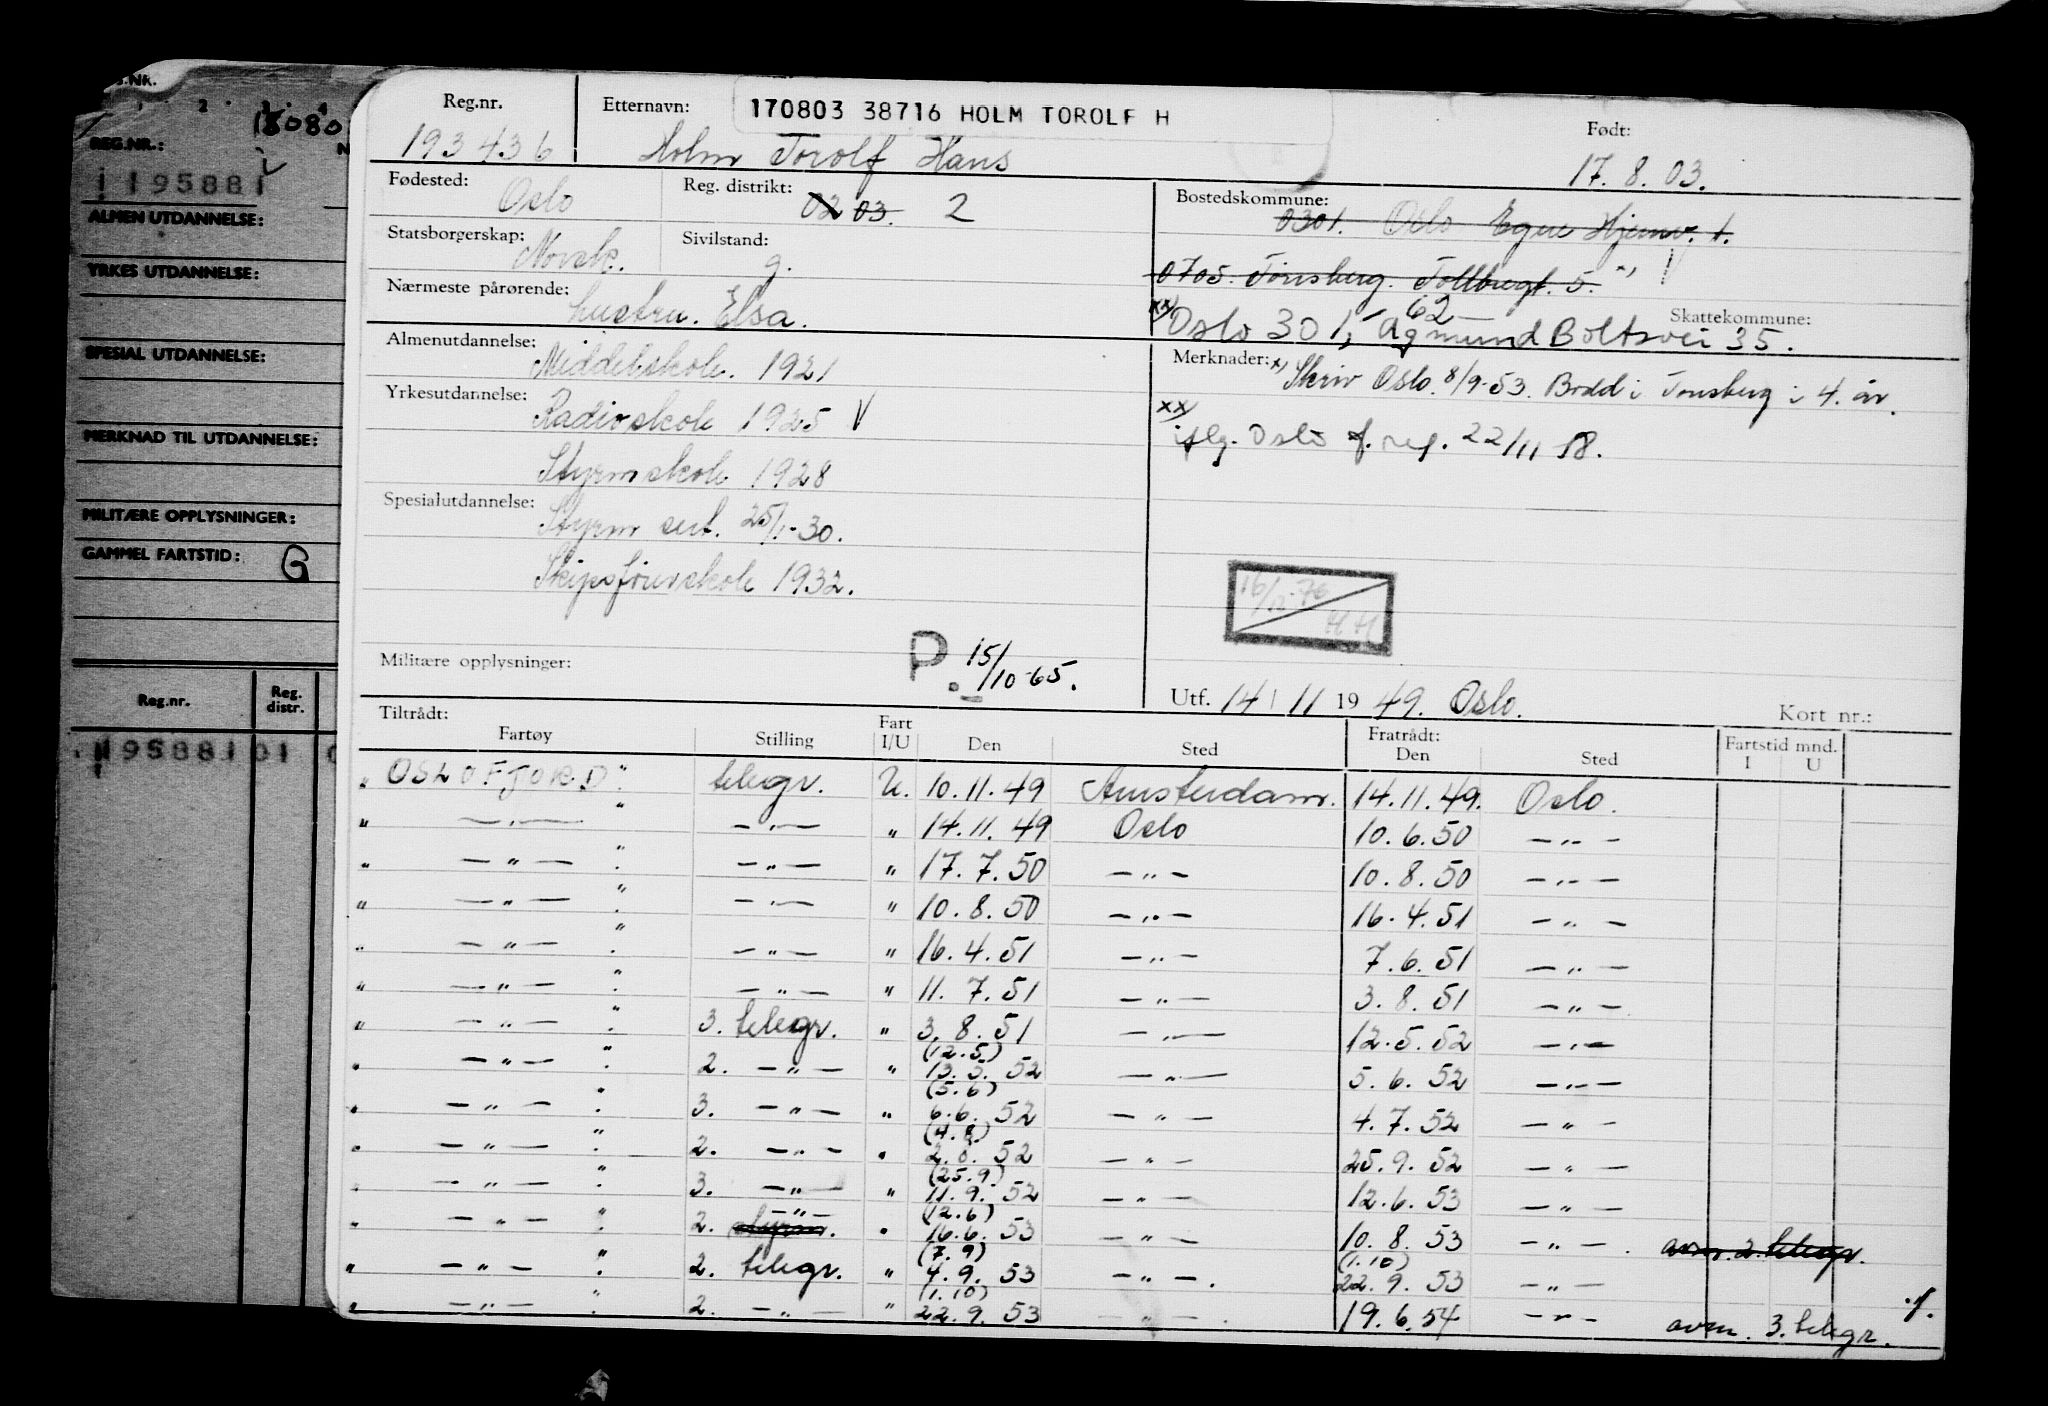 Reg.nr. Etternavn: 170803 38716 HOLM TOROLF H Født:
193436 Holm Torolf Hans 17.8.03.
Fødested: Oslo Reg. distrikt: 02 03. 2 Bostedskommune: 0301. Oslo Egne Hjemv. 1.
Statsborgerskap: Norsk. Sivilstand: g. 0705. Tønsberg. Tollbugt. 5. x)
Nærmeste pårørende: hustru. Elsa. xx) Oslo 301, Agmund Boltsvei 35. 62 Skattekommune:
Almenutdannelse: Middelskole. 1921 Merknader: x) Skriv Oslo 8/9-53. Bodd i Tønsberg i 4. år.
Yrkesutdannelse: Radioskole 1925 V xx)
Styrmskole 1928 iflg. Oslo f. reg. 22/11 58.
Spesialutdannelse: Styrm sert. 25/1-30.
Skipsførerskole 1932. 16/12-76 HH
Militære opplysninger: P. 15/10-65. Utf. 14/11 1949. Oslo. Kort nr.:
Tiltrådt: Fratrådt: Fartstid mnd.
Fartøy Stilling Fart I/U Den Sted Den Sted I U
" OSLOFJORD " telegr. U. 10.11.49 Amsterdam. 14.11.49. Oslo.
" —"— " —"— " 14.11.49 Oslo 10.6.50 —"—
" —"— " —"— " 17.7.50 —"— 10.8.50 —"—
" —"— " —"— " 10.8.50 —"— 16.4.51 —"—
" —"— " —"— " 16.4.51 —"— 7.6.51 —"—
" —"— " —"— " 11.7.51 —"— 3.8.51 —"—
" —"— " 3. telegr. " 3.8.51 —"— 12.5.52 —"—
" —"— " 2. —"— " (12.5) 13.5.52 —"— 5.6.52 —"—
" —"— " 3. —"— " (5.6) 6.6.52 —"— 4.7.52 —"—
" —"— " 2. —"— " (4.8) 2.8.52 —"— 25.9.52 —"—
" —"— " 3. —"— " (25.9) 11.9.52 —"— 12.6.53 —"—
" —"— " 2. styrm. —"— " (12.6) 16.6.53 —"— 10.8.53 —"— . avm. 2. telegr.
" —"— " 2. telegr. " (7.9) 4.9.53 —"— . (1.10) 22.9.53 —"—
" —"— " 2. —"— " (1.10) 22.9.53 —"— . 19.6.54 —"— avm. 3. telegr. ./.
S.NK.
1 2 3 4
18080
REG.NR.: N
195881
ALMEN UTDANNELSE:
YRKES UTDANNELSE:
SPESIAL UTDANNELSE:
MERKNAD TIL UTDANNELSE:
MILITÆRE OPPLYSNINGER:
GAMMEL FARTSTID: G
Reg.nr. Reg. distr.
195881 01 0